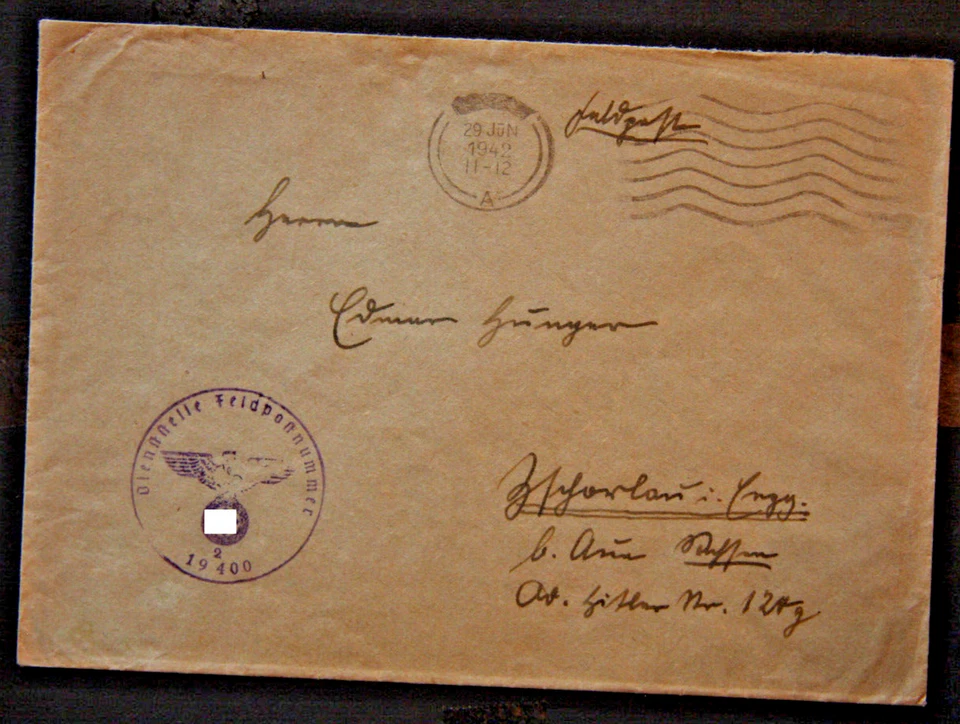 29 JUN
1942
11-12
A
Feldpost
Herrn
Edmar Hunger
Dienststelle Feldpostnummer
2
19400
Zschorlau i. Erzg.
b. Aue Sachsen
Ad. Hitler Str.